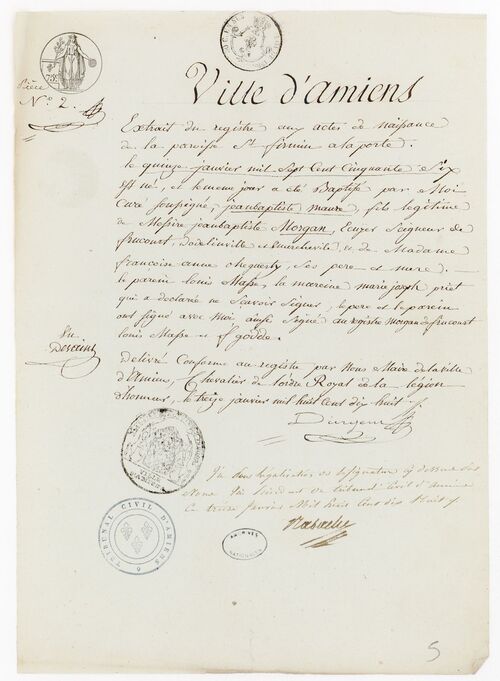 Pièce
N.° 2.
Ville d'amiens
Extrait du registre aux actes de naissance
de la paroisse St firmin a la porte.
le quinze janvier mil Sept Cent Cinquante Six
est né, et le meme jour a été Baptisé par Moi
Curé soussigné, jeanbaptiste maure, fils legitime
de Messire jeanbaptiste Morgan, Ecuyer Seigneur de
frucourt, et de Madame
francoise anne, ses pere et mere.
le parein louis Masse, la mareine marie joseph priet
qui a declaré ne Scavoir Signer, le pere et le parein
ont signé avec moi ainsi Signé au registre Morgan de frucourt
louis Masse et
délivré Conforme au registre par Nous Maire de la ville
d'Amiens, Chevalier de l'ordre Royal de la légion
d'honneur, le treize janvier mil huit Cent dix huit
Vu
TRIBUNAL CIVIL D'AMIENS
ARCHIVES
NATIONALES
Vu pour légalisation de la signature ci dessus par
Nous President du tribunal Civil d'Amiens
Ce treize Janvier Mil huit Cent dix huit
5